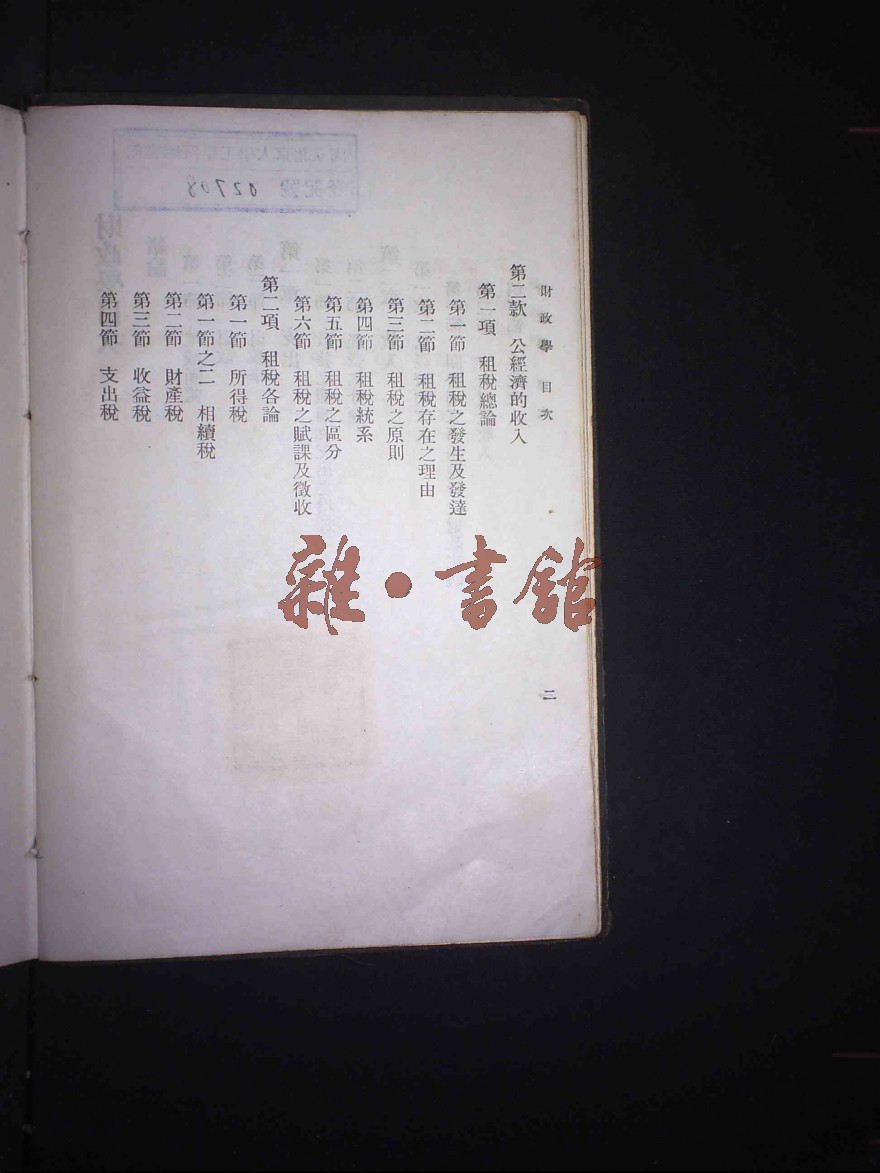 財政學 目次
二
第二款 公經濟的收入
第一項 租稅總論
第一節 租稅之發生及發達
第二節 租稅存在之理由
第三節 租稅之原則
第四節 租稅統系
第五節 租稅之區分
第六節 租稅之賦課及徵收
第二項 租稅各論
第一節 所得稅
第一節之二 相續稅
第二節 財產稅
第三節 收益稅
第四節 支出稅
雜·書館